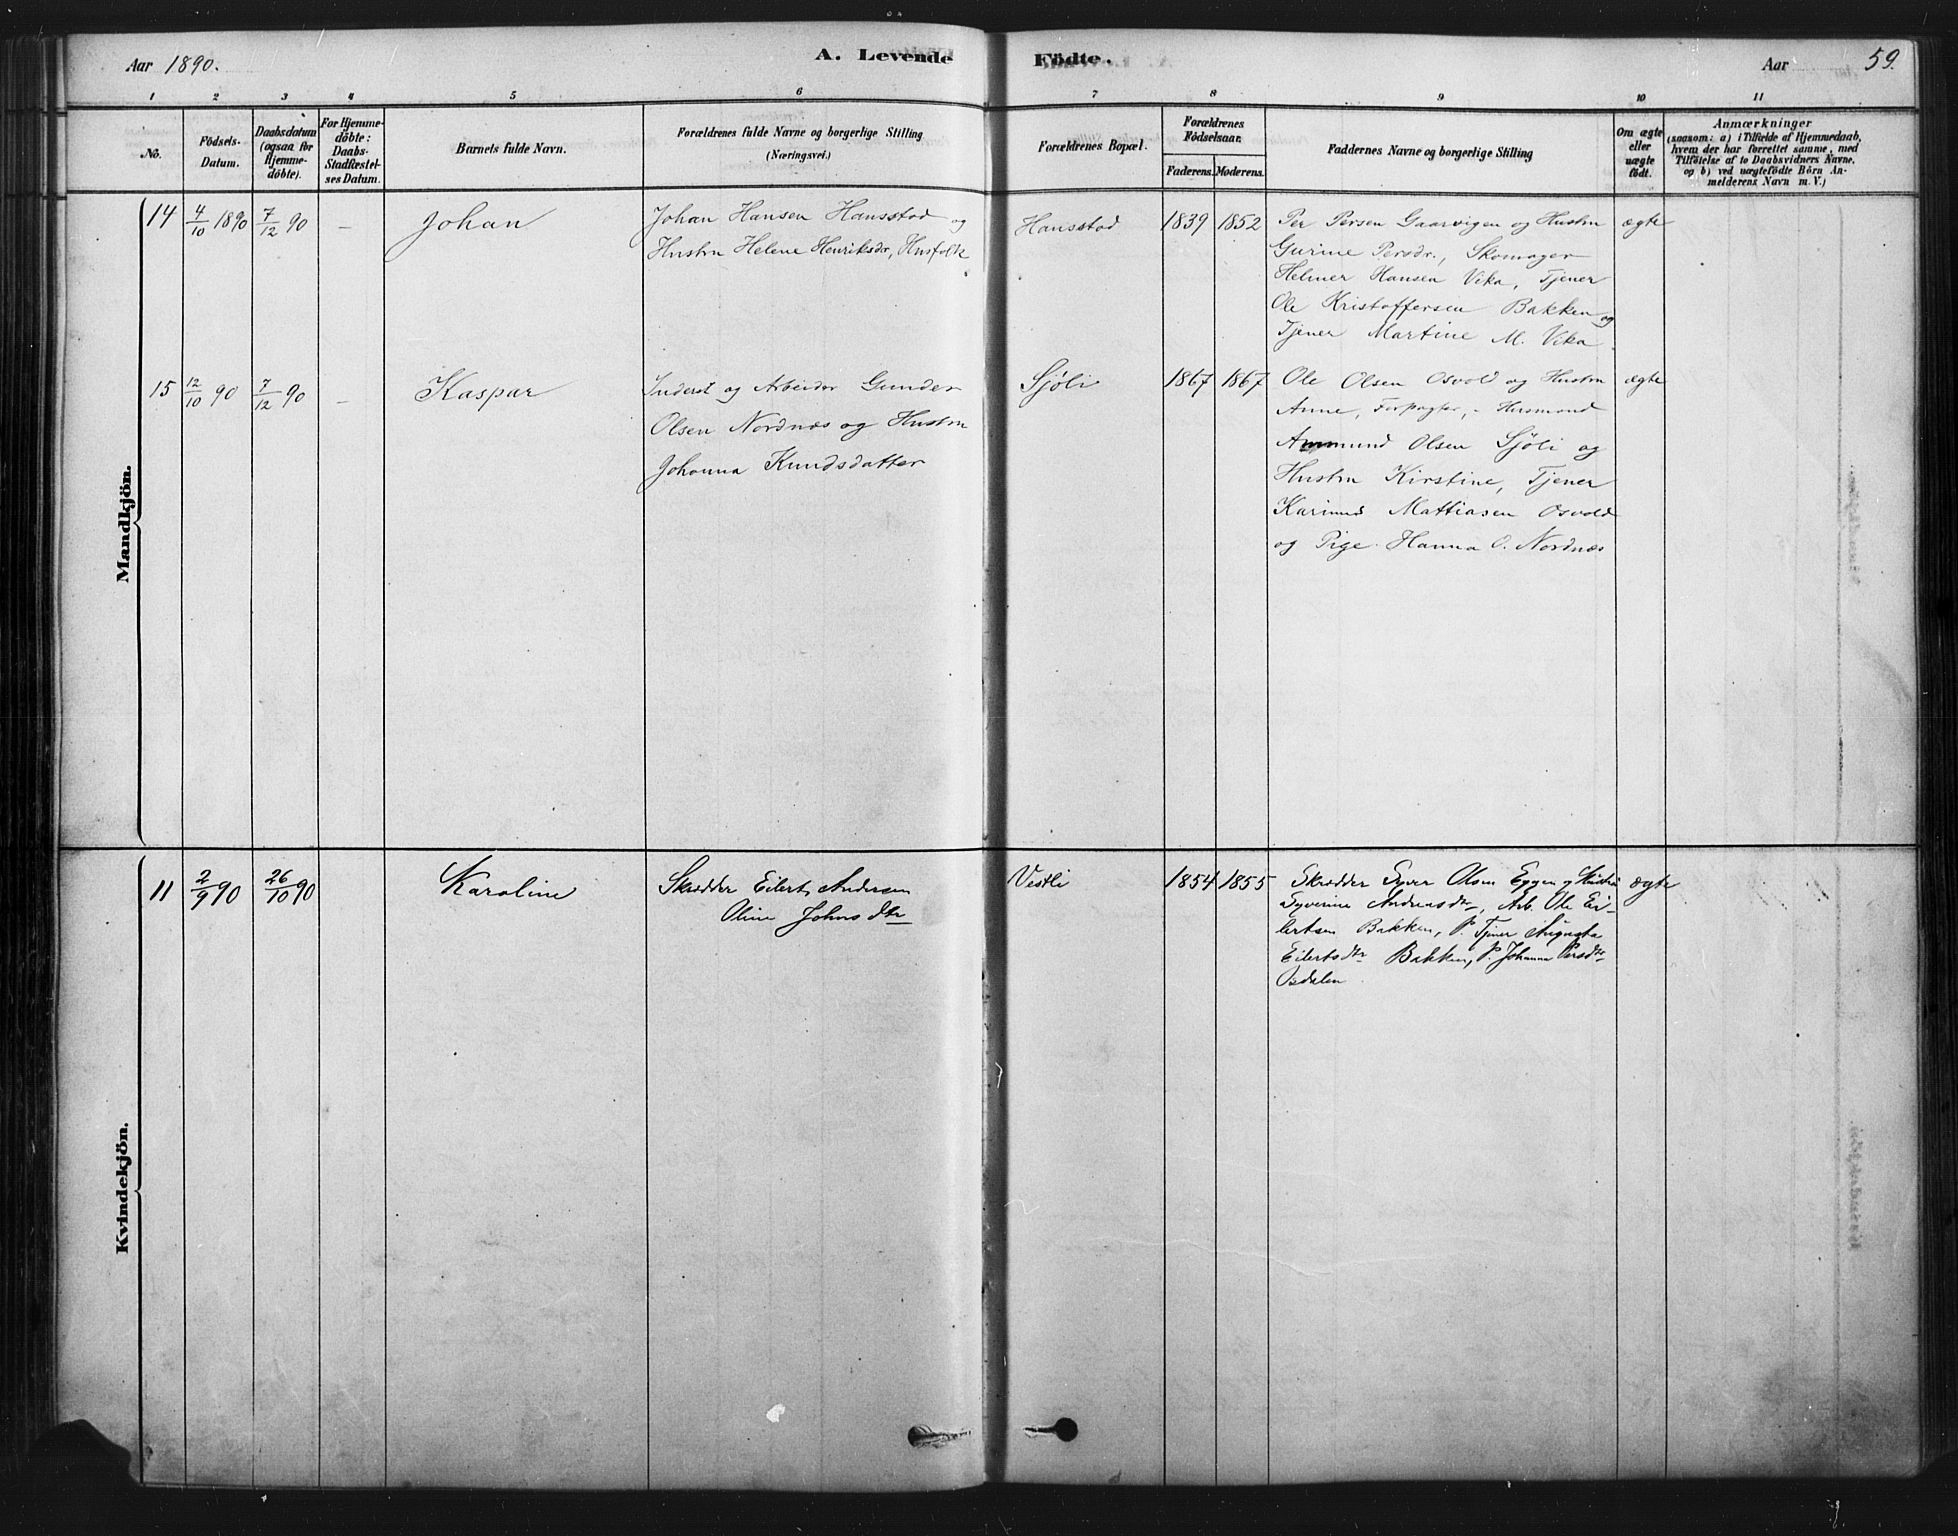 Aar 1890.
A. Levende
Födte.
Aar
59.
1 2 3 4 5 6 7 8 9 10 11
No.
Födsels-
Datum.
Daabsdatum
(ogsaa for
Hjemme-
döbte).
For Hjemme-
döbte:
Daabs-
Stadfæstel-
ses Datum.
Barnets fulde Navn.
Forældrenes fulde Navne og borgerlige Stilling
(Næringsvei.)
Forældrenes Bopæl.
Forældrenes
Födselsaar.
Faderens. Moderens.
Faddernes Navne og borgerlige Stilling
Om ægte
eller
uægte
födt.
Anmærkninger
(saasom: a) i Tilfælde af Hjemmedaab,
hvem der har forrettet samme, med
Tilföielse af to Daabsvidners Navne,
og b) ved uægtefödte Börn An-
melderens Navn m. V.)
Mandkjön.
14
4/10 1890
7/12 90
–
Johan
Johan Hansen Hansstad og
Hustru Helene Henriksdr., Husfolk
Hansstad
1839
1852
Per Persen Gaarvigen og Hustru
Gurine Persdr., Skomager
Helmer Hansen Vika, Tjener
Ole Kristoffersen Bakken og
Tjener Martine M. Vika
ægte
15
12/10 90
7/12 90
–
Kaspar
Inderst og Arbeider Gunder
Olsen Nordnæs og Hustru
Johanna Knudsdatter
Sjöli
1867
1867
Ole Olsen Osvold og Hustru
Anne, Forpagter, - Husmand
Ammund Olsen Sjöli og
Hustru Kirstine, Tjener
Karinus Mattiasen Osvold
og Pige Hanna O. Nordnæs
ægte
Kvindekjön.
11
2/9 90
26/10 90
Karoline
Skrædder Eilert Andersen
Oline Johnsdtr
Vestli
1854
1855
Skrædder Syver Olsen Eggen og Hustru
Syverine Andreasdtr, Arb. Ole Ei-
lertsen Bakken, P. Tjener Augusta
Eilertsdtr Bakken, P. Johanna Persdtr
Osdalen
ægte